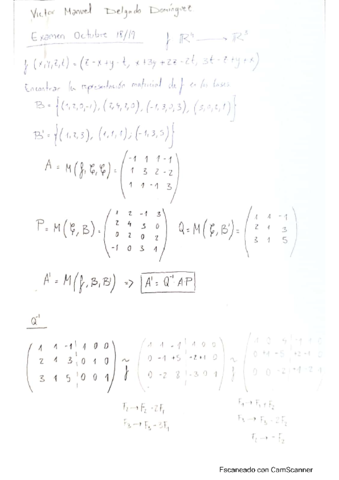 Victor Manuel Delgado Domínguez
Examen Octubre 18/19 f ℝ⁴ → ℝ³
f(x,y,z,t) = (z-x+y-t, x+3y+2z-2t, 3t-z+y+x)
Encontrar la representación matricial de f en las bases
B = {(1,2,0,-1), (2,4,2,0), (-1,3,0,3), (3,0,2,1)}
B' = {(1,2,3), (1,1,1), (-1,3,5)}
A = M(f,C,C) = ( -1 1 1 -1
1 3 2 -2
1 1 -1 3 )
P = M(C,B) = ( 1 2 -1 3
2 4 3 0
0 2 0 2
-1 0 3 1 ) Q = M(C,B') = ( 1 1 -1
2 1 3
3 1 5 )
A' = M(f,B,B') => A' = Q⁻¹AP
Q⁻¹
( 1 1 -1 | 1 0 0
2 1 3 | 0 1 0
3 1 5 | 0 0 1 ) ~
f
F₂→F₂-2F₁
F₃→F₃-3F₁
F₁→F₁+F₂
F₃→F₃-2F₂
Escaneado con CamScanner